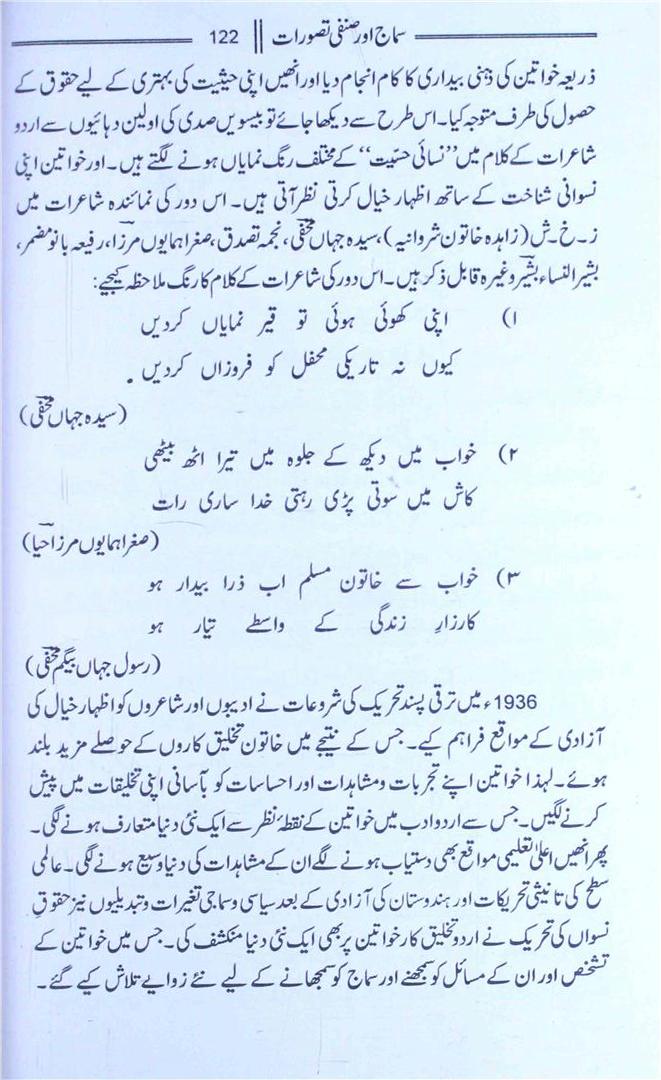 سماج اور صنفی تصورات || 122
ذریعہ خواتین کی ذہنی بیداری کا کام انجام دیا اور انھیں اپنی حیثیت کی بہتری کے لیے حقوق کے
حصول کی طرف متوجہ کیا۔ اس طرح سے دیکھا جائے تو بیسویں صدی کی اولین دہائیوں سے اردو
شاعرات کے کلام میں ’’نسائی حسّیت‘‘ کے مختلف رنگ نمایاں ہونے لگتے ہیں۔ اور خواتین اپنی
نسوانی شناخت کے ساتھ اظہار خیال کرتی نظر آتی ہیں۔ اس دور کی نمائندہ شاعرات میں
ز۔خ۔ش (زاہدہ خاتون شروانیہ)، سیدہ جہاں مخفیؔ، نجمہ تصدق، صغرا ہمایوں مرزا، رفیعہ بانو مضمر،
بشیر النساء بشیرؔ وغیرہ قابل ذکر ہیں۔ اس دور کی شاعرات کے کلام کا رنگ ملاحظہ کیجیے:
۱) اپنی کھوئی ہوئی تو قیر نمایاں کردیں
کیوں نہ تاریکی محفل کو فروزاں کردیں۔
(سیدہ جہاں مخفیؔ)
۲) خواب میں دیکھ کے جلوہ میں تیرا اٹھ بیٹھی
کاش میں سوتی پڑی رہتی خدا ساری رات
(صغرا ہمایوں مرزا حیاؔ)
۳) خواب سے خاتون مسلم اب ذرا بیدار ہو
کارزارِ زندگی کے واسطے تیار ہو
(رسول جہاں بیگم مخفیؔ)
1936ء میں ترقی پسند تحریک کی شروعات نے ادیبوں اور شاعروں کو اظہار خیال کی
آزادی کے مواقع فراہم کیے۔ جس کے نتیجے میں خاتون تخلیق کاروں کے حوصلے مزید بلند
ہوئے۔ لہذا خواتین اپنے تجربات و مشاہدات اور احساسات کو بآسانی اپنی تخلیقات میں پیش
کرنے لگیں۔ جس سے اردو ادب میں خواتین کے نقطۂ نظر سے ایک نئی دنیا متعارف ہونے لگی۔
پھر انھیں اعلیٰ تعلیمی مواقع بھی دستیاب ہونے لگے ان کے مشاہدات کی دنیا وسیع ہونے لگی۔ عالمی
سطح کی تانیثی تحریکات اور ہندوستان کی آزادی کے بعد سیاسی و سماجی تغیرات و تبدیلیوں نیز حقوقِ
نسواں کی تحریک نے اردو تخلیق کار خواتین پر بھی ایک نئی دنیا منکشف کی۔ جس میں خواتین کے
تشخص اور ان کے مسائل کو سمجھنے اور سماج کو سمجھانے کے لیے نئے زوایے تلاش کیے گئے۔